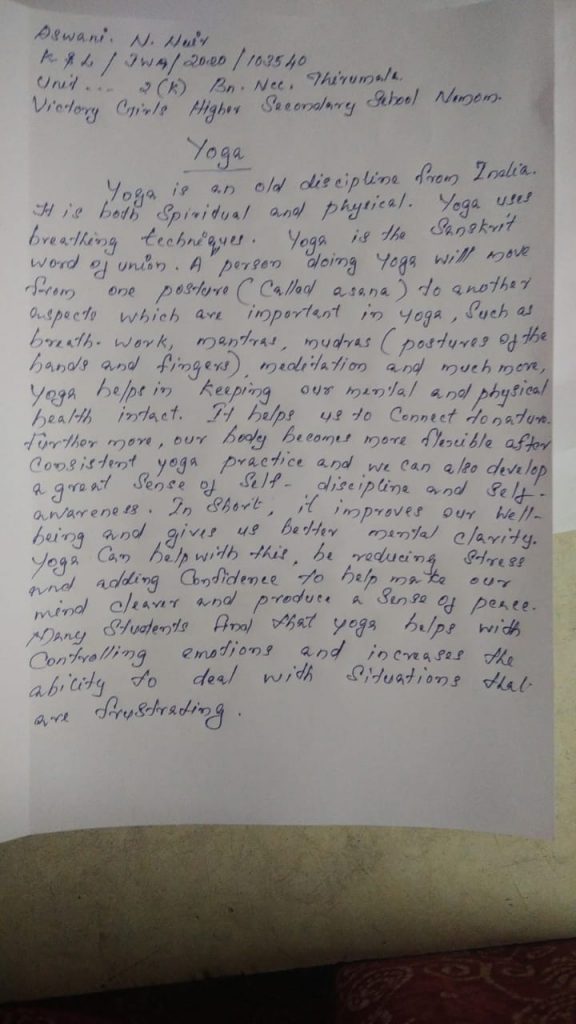 Aswani. N. Nair
K & L / JWA / 2020 / 103540
Unit ... 2 (K) Bn. Ncc. Thirumala
Victory Girls Higher Secondary School Nemom.
Yoga
Yoga is an old discipline from India.
It is both Spiridual and physical. Yoga uses
breathing techniques. Yoga is the Sanskrit
word of union. A person doing Yoga will move
from one posture (Called asana) to another
aspects which are important in yoga, Such as
breath-work, mantras, mudras (postures of the
hands and fingers), meditation and much more,
Yoga helps in keeping our mental and physical
health intact. It helps us to Connect to nature.
further more, our body becomes more flexible after
Consistent yoga practice and we can also develop
a great Sense of Self-discipline and Self-
awareness. In Short, it improves our Well-
being and gives us better mental clarity.
Yoga Can help with this, be reducing Stress
and adding Confidence to help make our
mind clearer and produce a Sense of peace.
Many Students find that yoga helps with
Controlling emotions and increases the
ability to deal with Situations that
are frustrating.